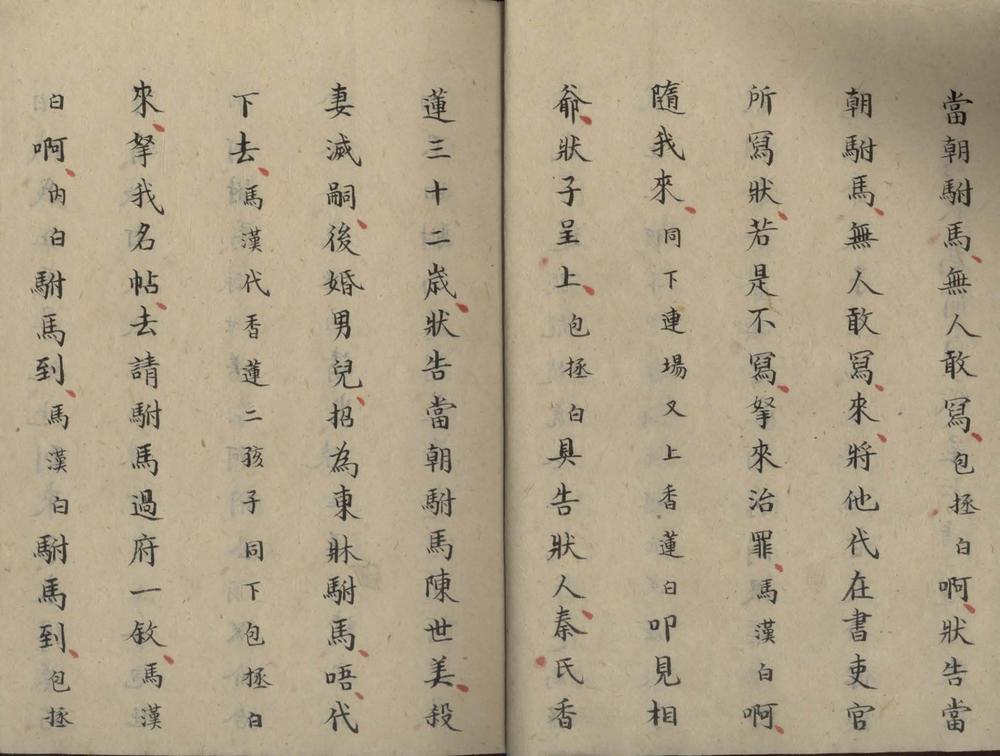 當朝駙馬無人敢寫包拯白啊狀告當
朝駙馬無人敢寫來將他代在書吏官
所寫狀若是不寫拏來治罪馬漢白啊
隨我來同下連場又上香蓮白叩見相
爺狀子呈上包拯白具告狀人秦氏香
蓮三十二歲狀告當朝駙馬陳世美殺
妻滅嗣後婚男兒招為東牀駙馬唔代
下去馬漢代香蓮二孩子同下包拯白
來拏我名帖去請駙馬過府一敘馬漢
白啊內白駙馬到馬漢白駙馬到包拯